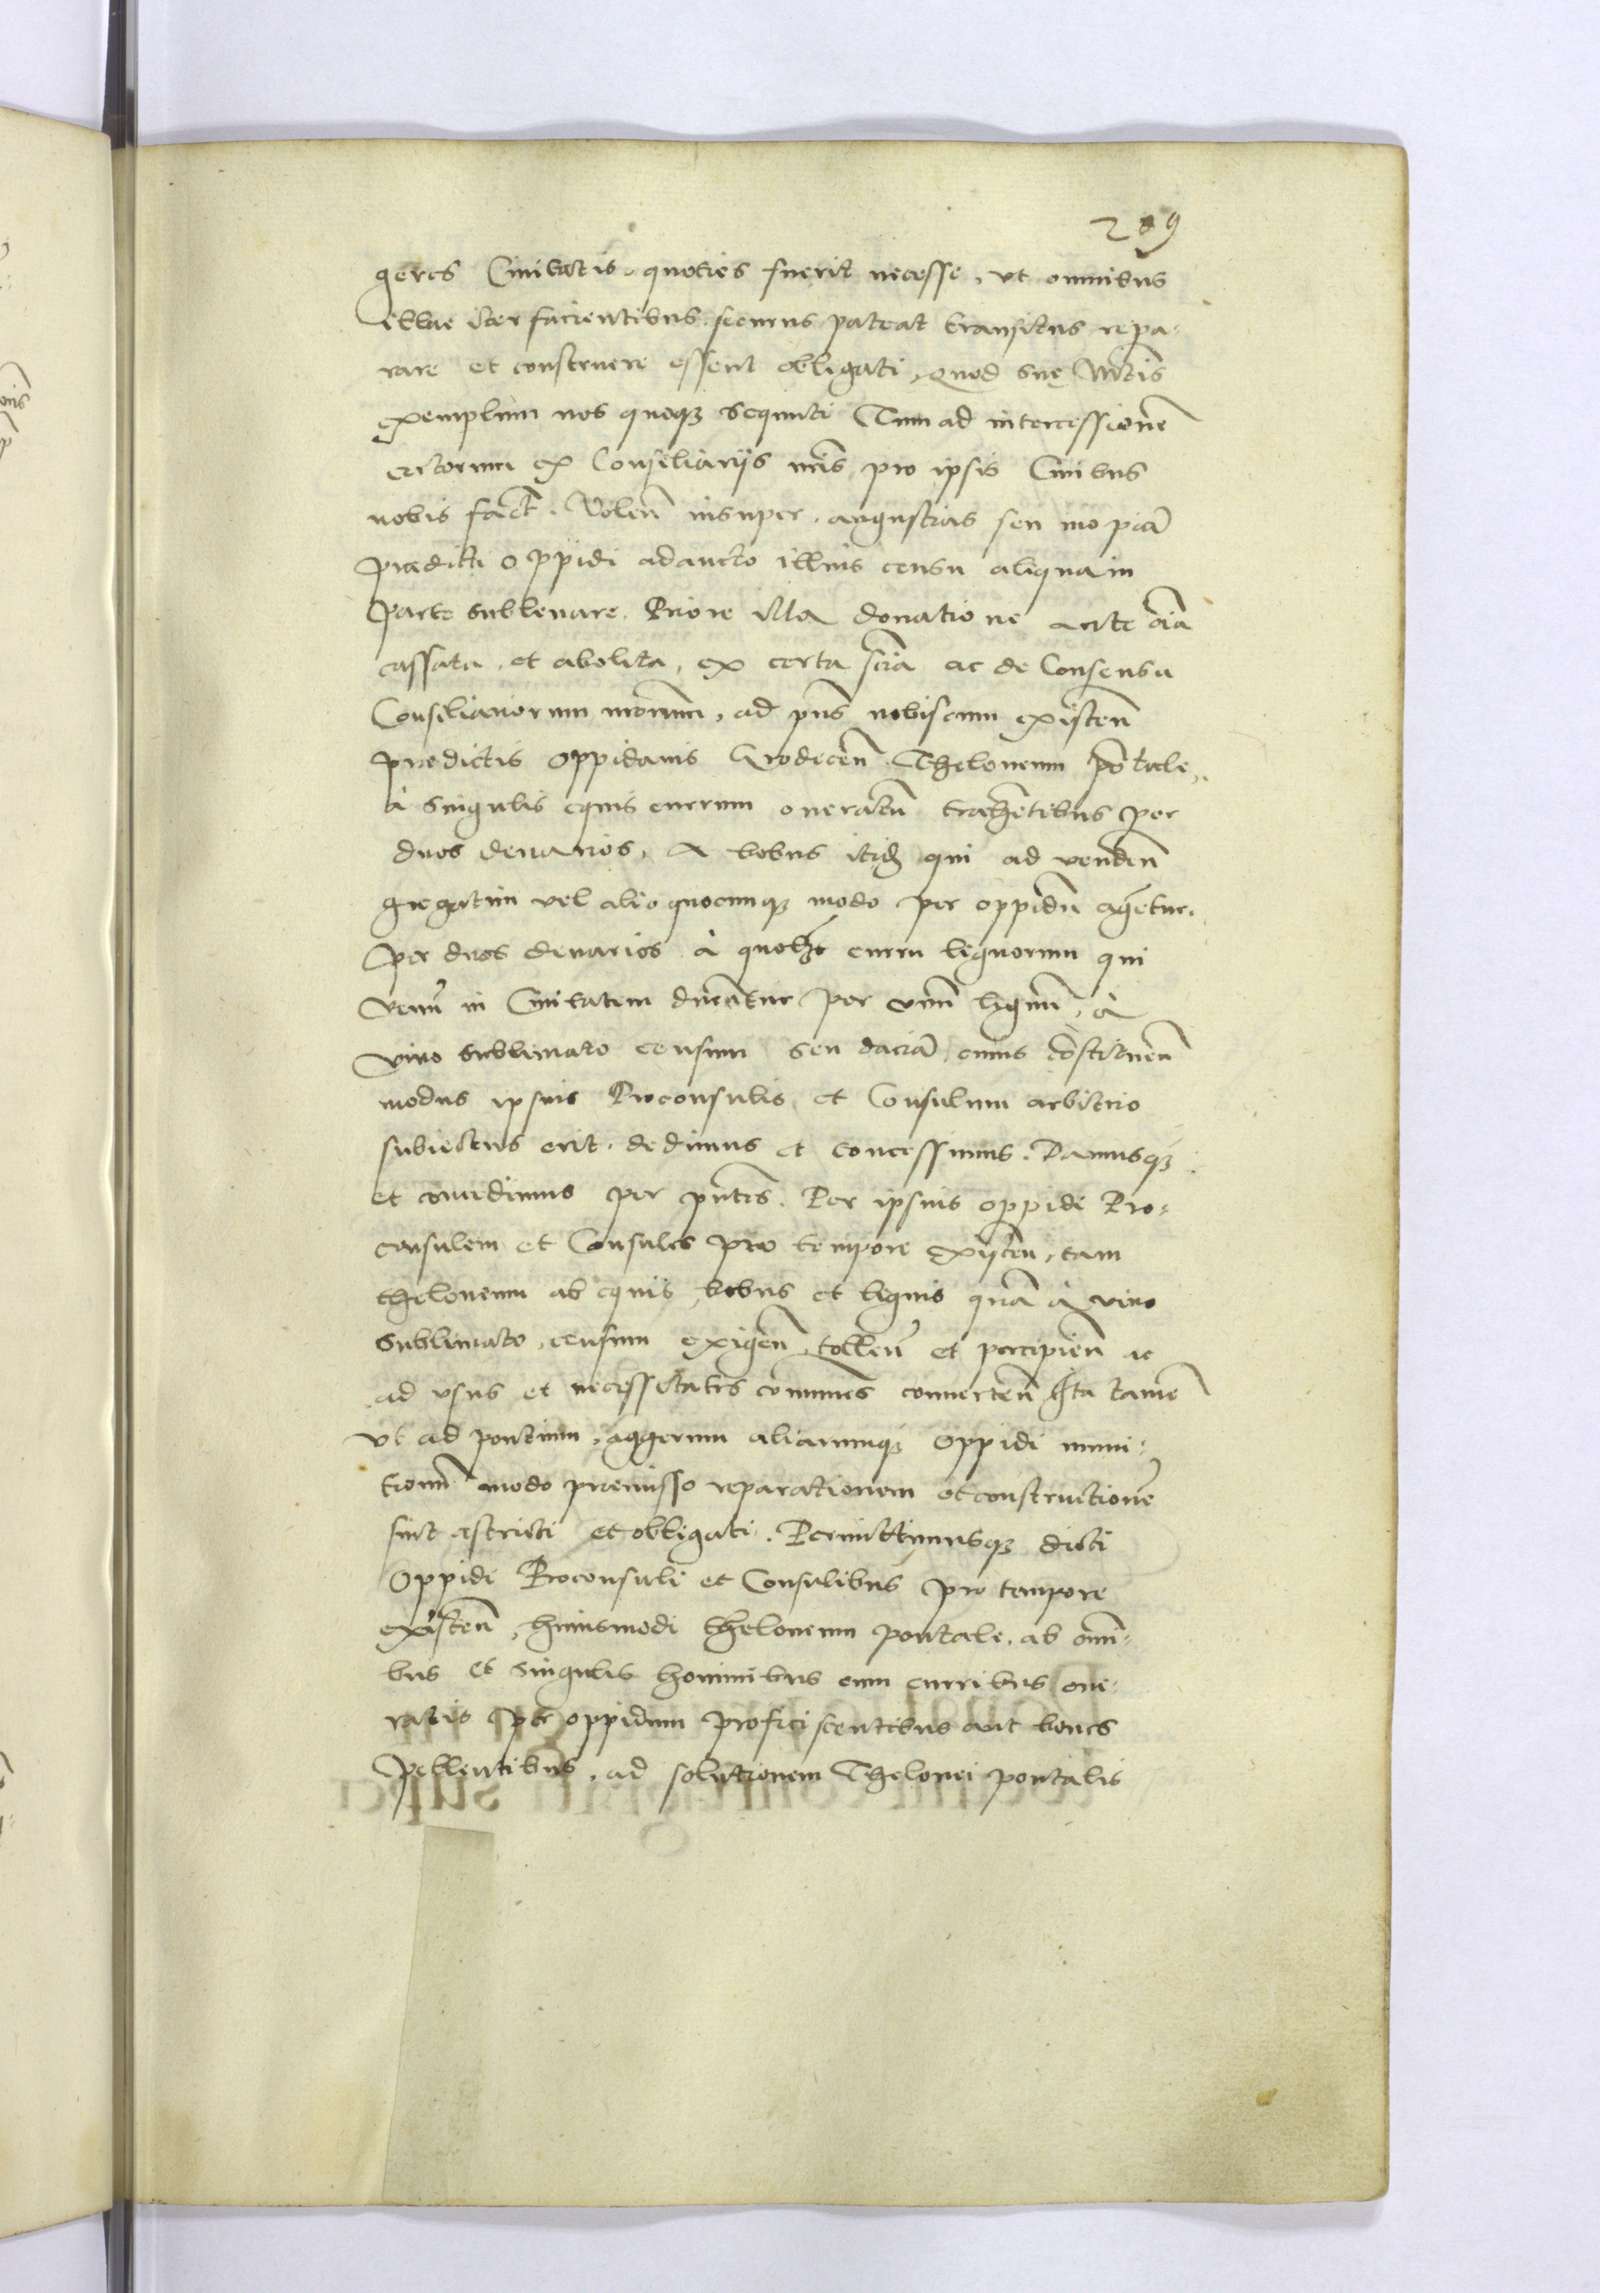 209
geres Civitatis quoties fuerit necesse, ut omnibus
illac iter facientibus securus pateat transitus repa-
rare et construere essent obligati, quod suę Mtis
exemplum nos quoqȝ sequuti Tum ad intercessionē
certorum ex Consiliarijs nr̄is pro ipsis Civibus
nobis fact̄. Volen̄ insuper angustias seu inopiā
prædicti oppidi adaucto illius censu aliqua in
parte sublevare. Priore illa donatione ante oīa
cassata et abolita, ex certa scīa ac de Consensu
Consiliariorum nr̄orum, ad pn̄s nobiscum existen̄
predictis oppidanis Grodecen̄ Theloneum pōtale
à singulis equis currum oneratū trahētibus per
duos denarios, A bobus itidē qui ad venden̄
gregatim vel alio quocumqȝ modo per oppidū agētur
per duos denarios à quolibet curru lignorum qui
in Civitatem ducātur per unū lignū, à
vino sublimato censum seu daciā, cuius cōstituen̄
modus ipsius Proconsulis et Consulum arbitrio
subiectus erit. dedimus et concessimus. Damusqȝ
et concedimus per pn̄tes. Per ipsius oppidi Pro-
consulem et Consules pro tempore existen̄, tam
theloneum ab equis, bobus et lignis quā à vino
sublimato, censum exigen̄ tollen̄ et percipien̄ ac
ad usus et necessitates cōmunes converten̄ Ita tamē
ut ad pontium, aggerum aliarumqȝ oppidi muni-
tionū modo premisso reparationem et constructionē
sint astricti et obligati. Permittimusqȝ dicti
Oppidi Proconsuli et Consulibus pro tempore
existen̄, huiusmodi theloneum pontale, ab omni-
bus et singulis hominibus cum curribus one-
ratis per oppidum proficiscentibus aut boves
pellentibus, ad solutionem Thelonei pontalis